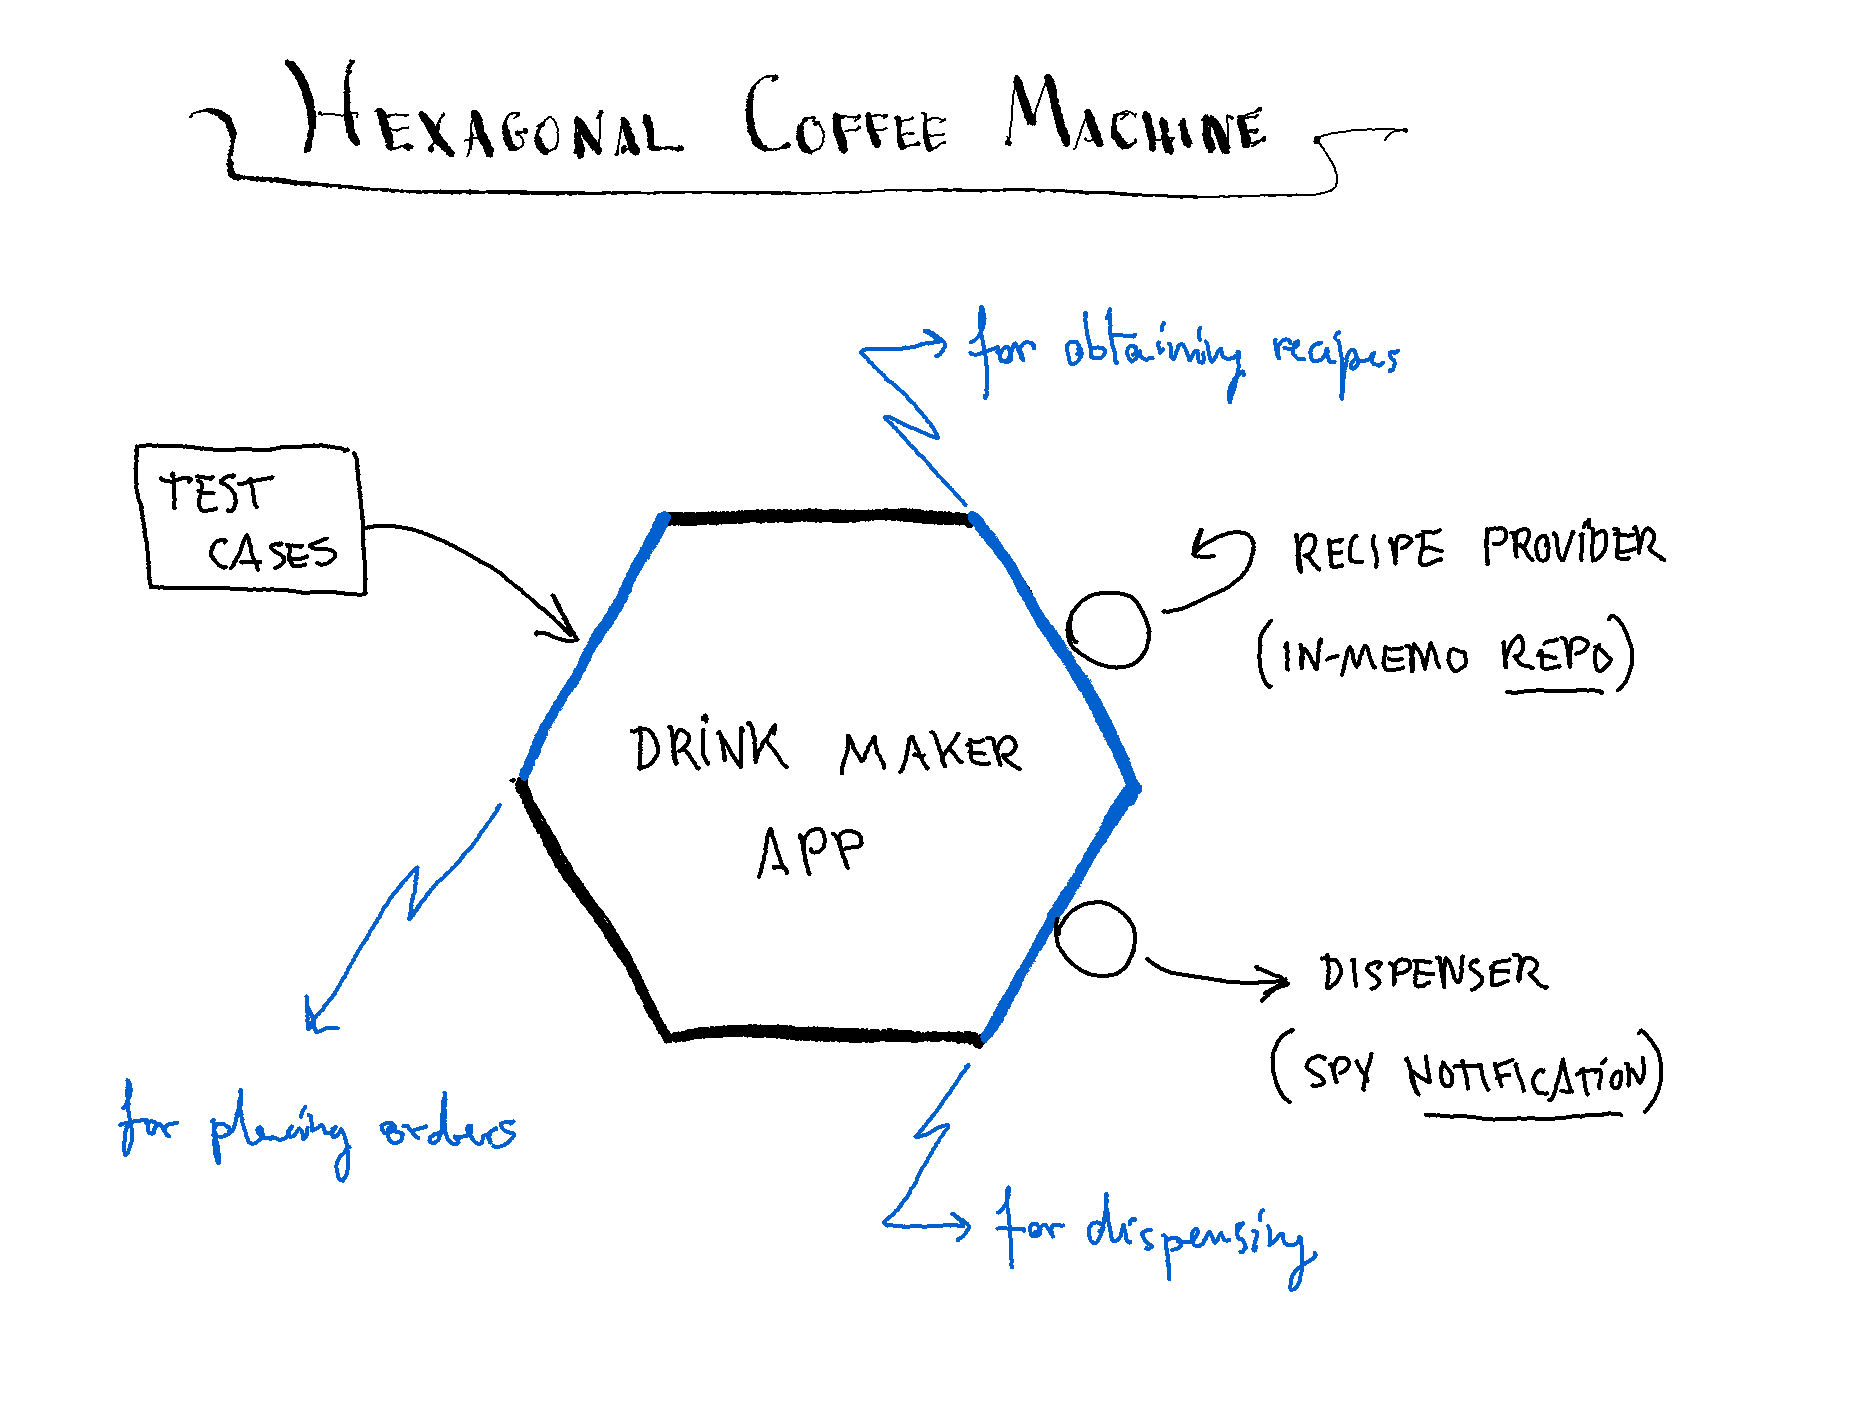 HEXAGONAL COFFEE MACHINE
for obtaining recipes
TEST
CASES
RECIPE PROVIDER
(IN-MEMO REPO)
DRINK MAKER
APP
DISPENSER
(SPY NOTIFICATION)
for placing orders
for dispensing